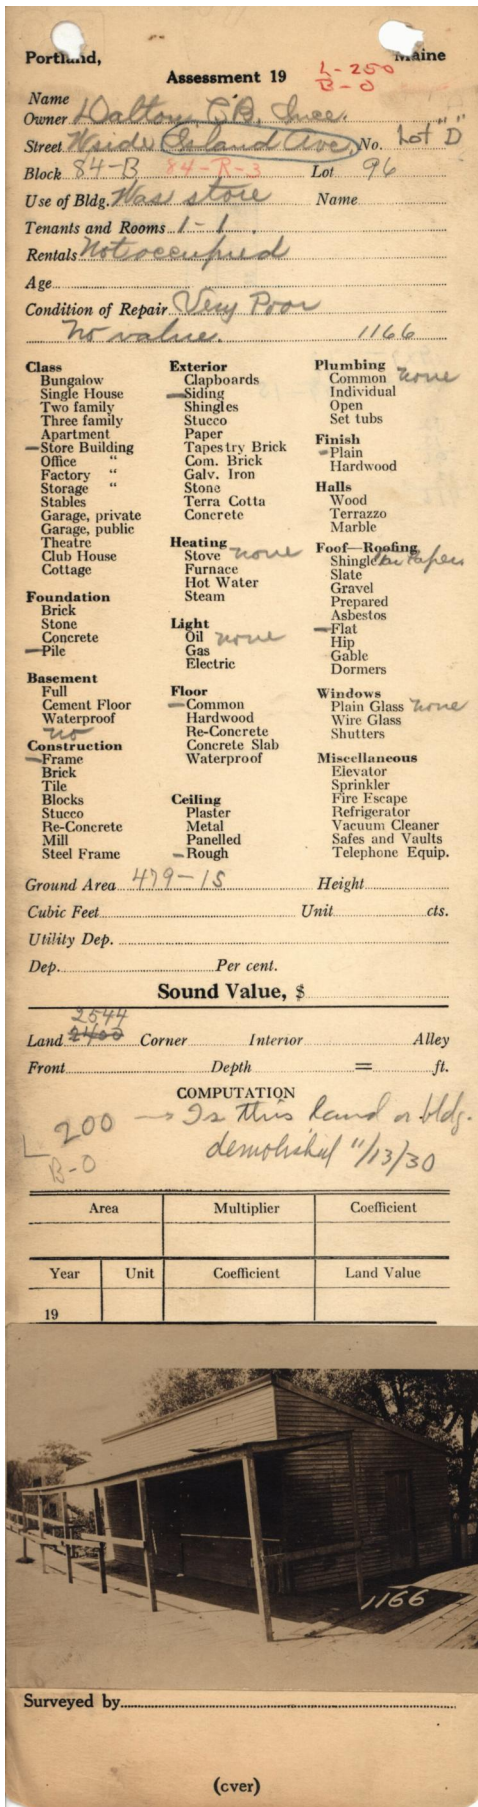 Portland, Maine
Assessment 19
L-250
B-0
Name
Owner Dalton C.B. Ince.
Street Wside Island Ave. No. Lot "D"
Block 84-B 84-R-3 Lot 96
Use of Bldg. Was store Name
Tenants and Rooms 1-1.
Rentals Not occupied
Age
Condition of Repair Very Poor
no value. 1166
Class
Bungalow
Single House
Two family
Three family
Apartment
—Store Building
Office "
Factory "
Storage "
Stables
Garage, private
Garage, public
Theatre
Club House
Cottage
Foundation
Brick
Stone
Concrete
—Pile
Basement
Full
Cement Floor
Waterproof
no
Construction
—Frame
Brick
Tile
Blocks
Stucco
Re-Concrete
Mill
Steel Frame
Exterior
Clapboards
—Siding
Shingles
Stucco
Paper
Tapestry Brick
Com. Brick
Galv. Iron
Stone
Terra Cotta
Concrete
Heating
Stove none
Furnace
Hot Water
Steam
Light
Oil none
Gas
Electric
Floor
—Common
Hardwood
Re-Concrete
Concrete Slab
Waterproof
Ceiling
Plaster
Metal
Panelled
—Rough
Plumbing
Common none
Individual
Open
Set tubs
Finish
—Plain
Hardwood
Halls
Wood
Terrazzo
Marble
Foof—Roofing
Shingle tar paper
Slate
Gravel
Prepared
Asbestos
—Flat
Hip
Gable
Dormers
Windows
Plain Glass none
Wire Glass
Shutters
Miscellaneous
Elevator
Sprinkler
Fire Escape
Refrigerator
Vacuum Cleaner
Safes and Vaults
Telephone Equip.
Ground Area 479-1S Height
Cubic Feet Unit cts.
Utility Dep.
Dep. Per cent.
Sound Value, $
2544
Land 2400 Corner Interior Alley
Front Depth = ft.
COMPUTATION
L 200 → Is this land or bldg.
B-0 demolished 11/13/30
Area Multiplier Coefficient
Year Unit Coefficient Land Value
19
1166
Surveyed by
(cver)